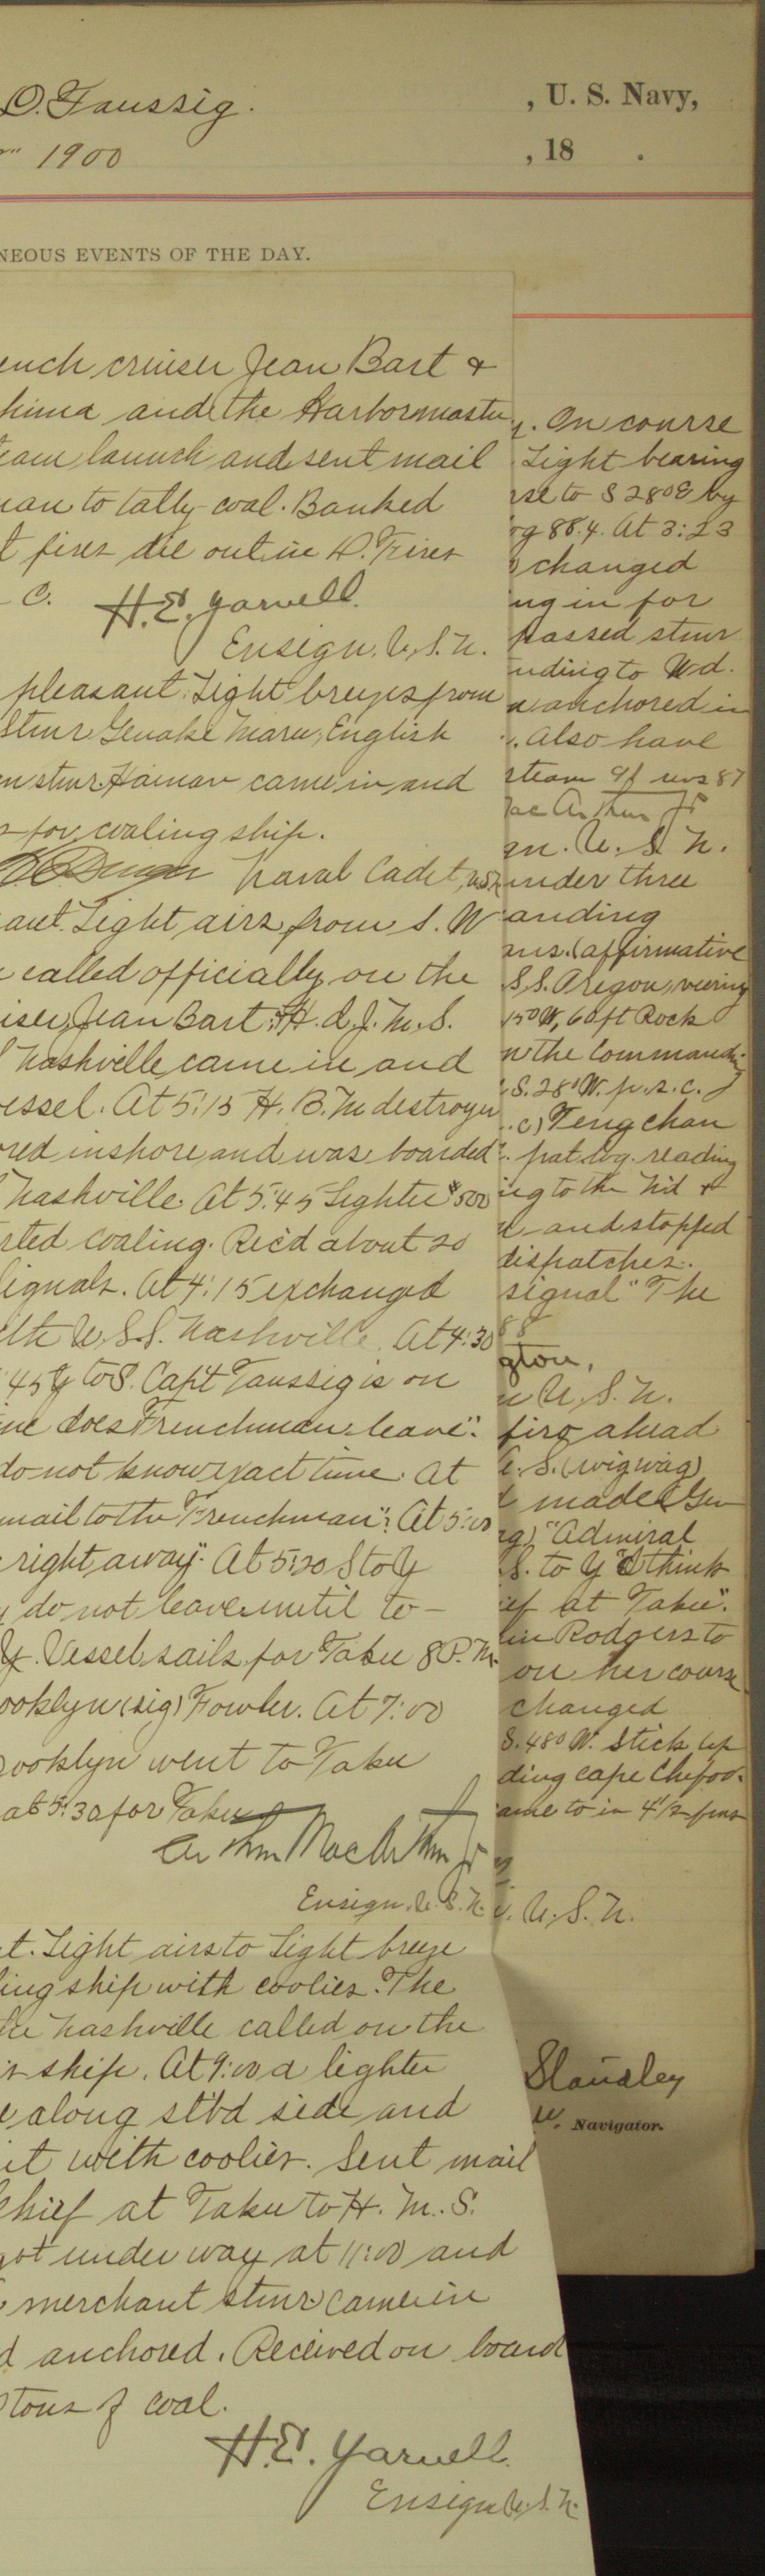 D. Taussig.
, U. S. Navy,
1900
, 18 .
NEOUS EVENTS OF THE DAY.
ench cruiser Jean Bart &
hima and the Harbormaster
eam launch and sent mail
man to tally coal. Banked
t fires die out in D. Fires
C.
H. E. Yarnell.
Ensign, U. S. N.
pleasant. Light breezes from
Stmr Genokai Maru, English
stmr. Hainan came in and
for coaling ship.
Naval Cadet, USN
ant. Light airs from S. W
called officially on the
iser Jean Bart; H. I. J. M. S.
Nashville came in and
essel. At 5:15 H. B. M destroyer
ored inshore and was boarded
Nashville. At 5:45 Lighter #500
rted coaling. Rec'd about 20
Signals. At 4:15 exchanged
ith U. S. S. Nashville. At 4:30
45 Y to S. Capt Taussig is on
ime does Frenchman leave".
do not know exact time. At
mail to the Frenchman"? At 5:10
right away". At 5:20 S to Y
do not leave until to-
Y. Vessel sails for Taku 8 P. M.
ooklyn (sig) Fowler. At 7:00
rooklyn went to Taku
at 5:30 for Taku
Arthur MacArthur Jr
Ensign, U. S. N.
t. Light airs to Light breeze
ling ship with coolies. The
he Nashville called on the
is ship. At 9:00 a lighter
e along stbd side and
it with coolies. Sent mail
Chief at Taku to H. M. S.
got under way at 11:00 and
merchant stmr came in
d anchored. Received on board
tons of coal.
H. E. Yarnell.
Ensign U. S. N.
y. On course
Light bearing
rse to S 28° E by
og 88.4. At 3:23
changed
ng in for
passed stmr
nding to Wd.
anchored in
. Also have
steam 91 revs 87
MacArthur Jr
gn. U. S. N.
under three
anding
ans. (affirmative
S. S. Oregon, veering
15° W, 60 ft Rock
n the Commandi-
S. 28° W. p. s. c.
. c) Teng chau
. pat. log. reading
ing to the Nd &
and stopped
dispatches.
signal "The
88
gton,
n U. S. N.
firo ahead
S. (wigwag)
made (Gen
ag) "Admiral
S. to Y "I think
ief at Taku".
in Rodgers to
on her course
changed
S. 48° W. Stick up
ding cape Chefoo.
ame to in 4 1/2 fms
. U. S. N.
Standley
Navigator.